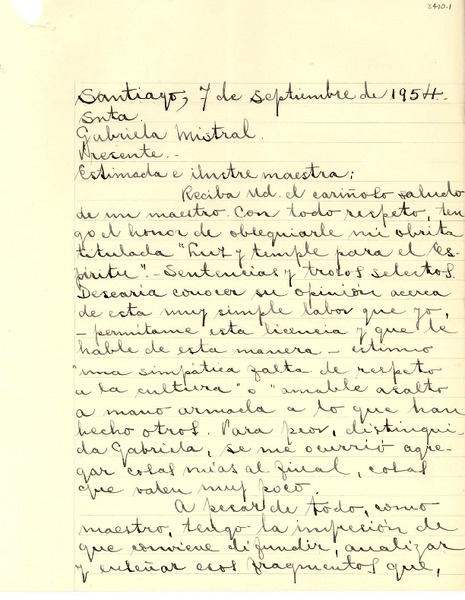 2410.1
Santiago, 7 de septiembre de 1954.
Snta.
Gabriela Mistral.
Presente.-
Estimada e ilustre maestra:
Reciba Ud. el cariñoso saludo
de un maestro. Con todo respeto, ten
go el honor de obsequiarle mi obrita
titulada "Luz y temple para el Es-
píritu".- Sentencias y trozos selectos.
Desearía conocer su opinión acerca
de esta muy simple labor que yo,
- permítame esta licencia y que le
hable de esta manera - estimo
"una simpática falta de respeto
a la cultura" o "amable asalto
a mano armada a lo que han
hecho otros. Para peor, distingui
da Gabriela, se me ocurrió agre-
gar cosas mías al final, cosas
que valen muy poco.
A pesar de todo, como
maestro, tengo la impresión de
que conviene difundir, analizar
y enseñar esos fragmentos que,